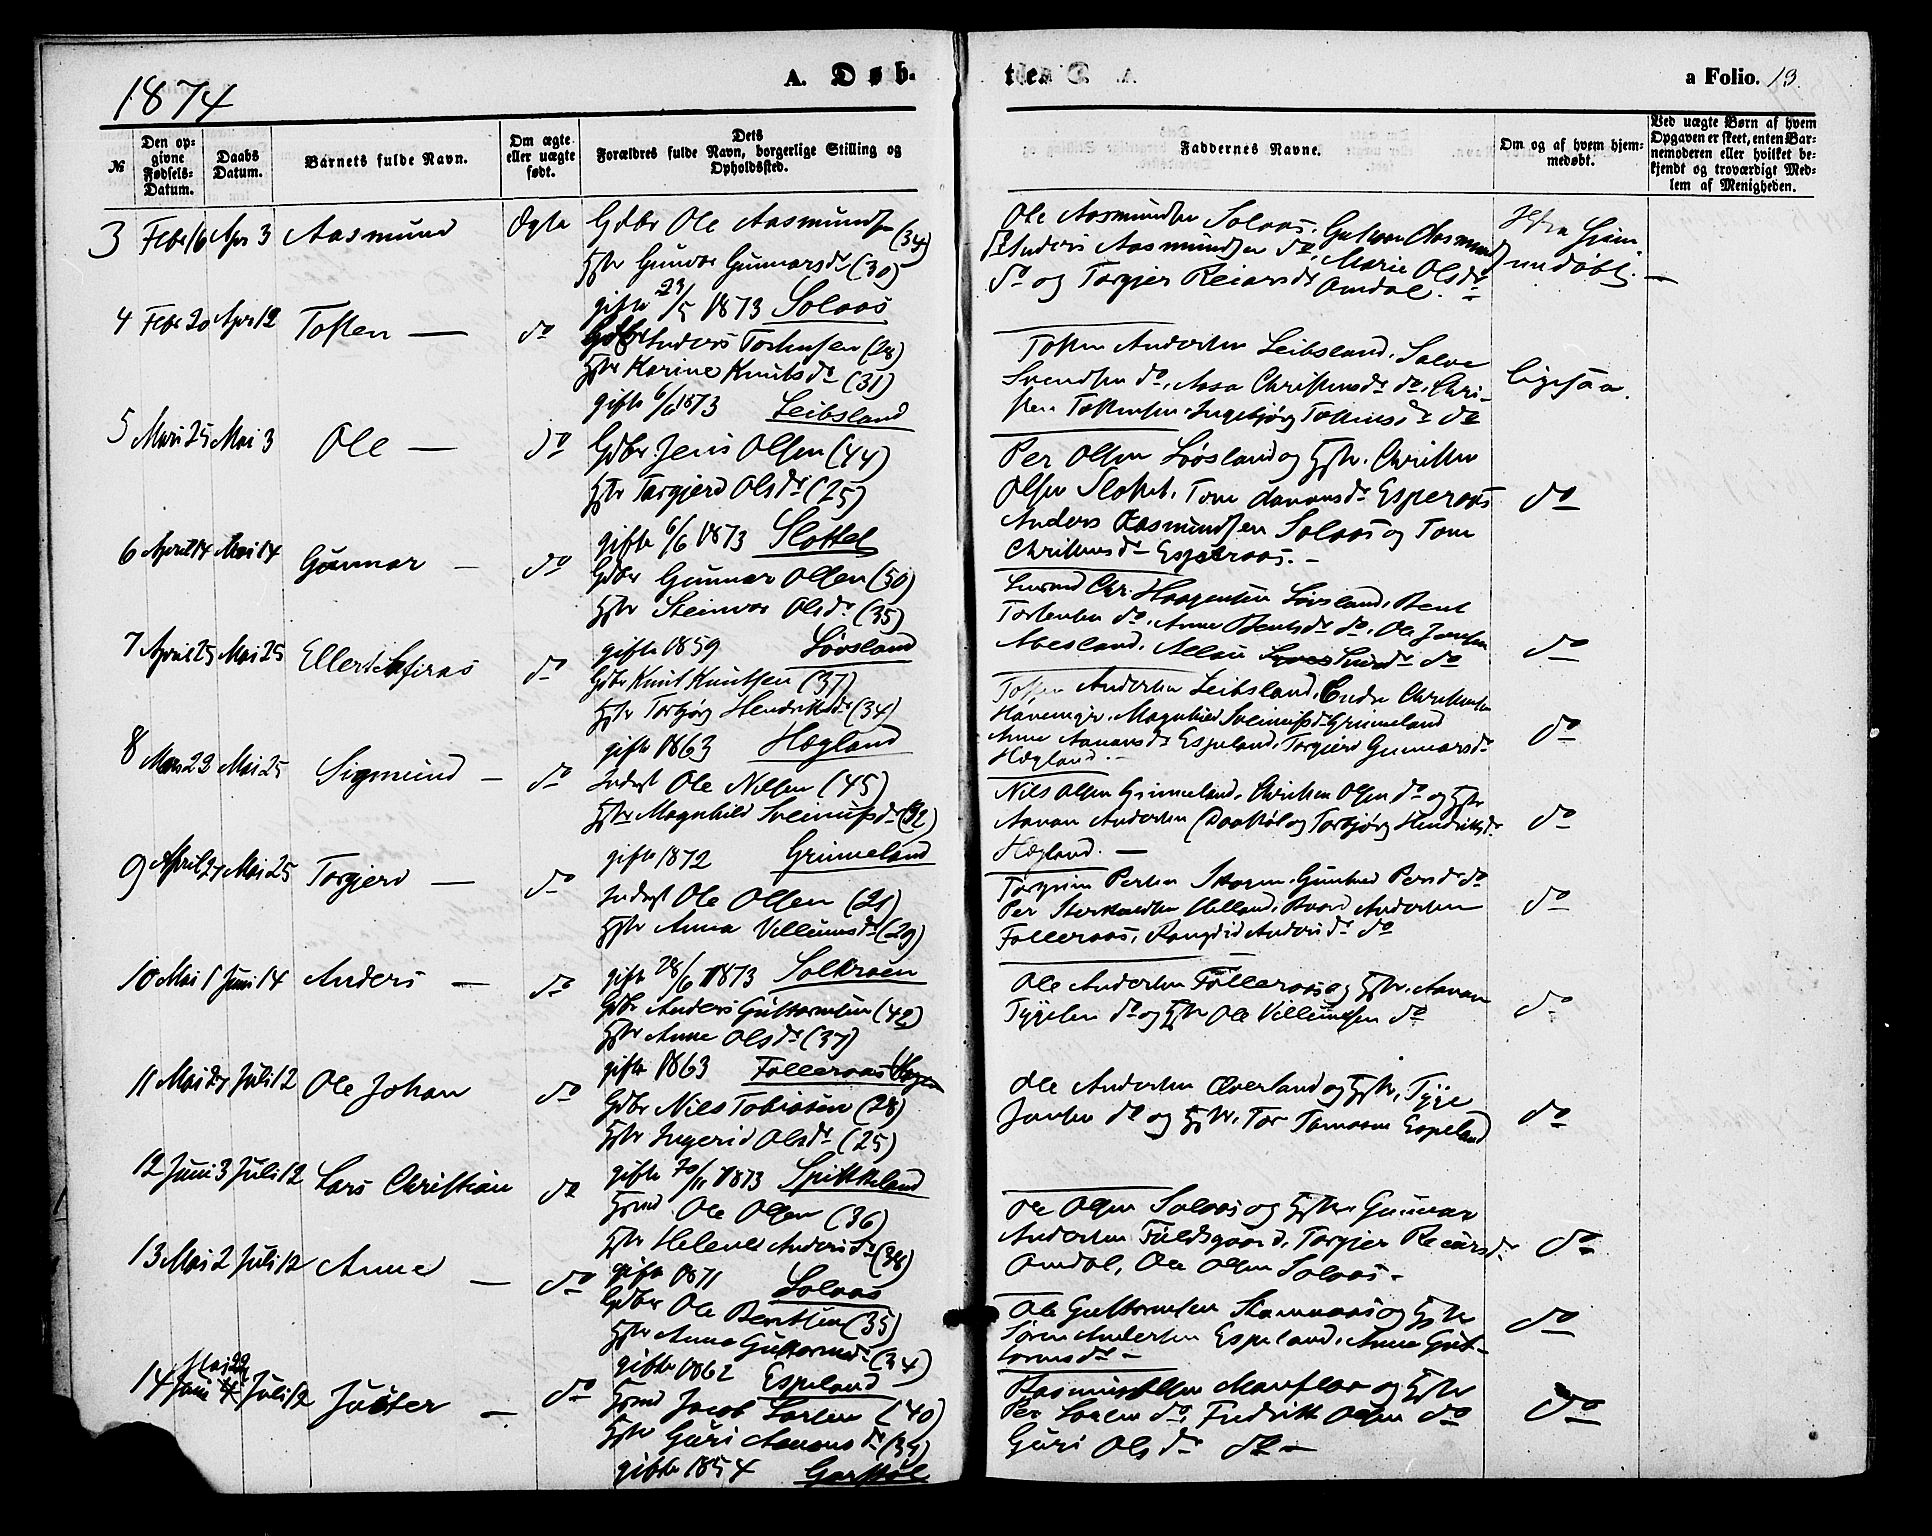 1874
A. Døb-
tes
a Folio. 13.
№
Den op-
givne
Fødsels-
Datum.
Daabs
Datum.
Barnets fulde Navn.
Om ægte
eller uægte
født.
Dets
Forældres fulde Navn, borgerlige Stilling og
Opholdssted.
Faddernes Navne.
Om og af hvem hjem-
medøbt.
Ved uægte Børn af hvem
Opgaven er skeet, enten Bar-
nemoderen eller hvilket be-
kjendt og troværdigt Med-
lem af Menigheden.
3 Febr 16 Apr 3 Aasmund Ægte Gdbr Ole Aasmundsen (34)
Hstr Gunvor Gunnarsdr (30)
gifte 23/5 1873 Solaas
Ole Aasmundsen Solaas,
Anders Aasmundsen do, Marie Olsdr
do og Torgjer Reiarsdr Omdal.
4 Febr 20 Apr 12 Tosten — do Gdbr Anders Tostensen (28)
Hstr Karine Knutsdr (31)
gifte 6/6 1873 Leibsland
Tosten Andersen Leibsland, Salve
Svendsen do, Aasa Christensdr do, Chri-
sten Tostensen, Ingebjørg Tostensdr do
ligesaa.
5 Marts 25 Mai 3 Ole — do Gdbr Jens Olsen (44)
Hstr Torgjerd Olsdr (25)
gifte 6/6 1873 Slottet
Per Olsen Løvsland og Hstr, Christen
Olsen Slottet, Tone Aanonsdr Esperaas
Anders Aasmundsen Solaas og Tone
Christensdr Esperaas. —
do
6 April 14 Mai 14 Gunnar — do Gdbr Gunnar Olsen (50)
Hstr Steinvor Olsdr (35)
gifte 1859 Løvsland
Chr. Haagensen Løvsland, Bent
Torstensen do, Anne Bentsdr do, Ole Jensen
do
7 April 25 Mai 25 Ellert do Gdbr Knut Knutsen (37)
Hstr Torbjør Hendriksdr (34)
gifte 1863 Hægland
Tosten Andersen Leibsland, Endre Christensen
Magnhild Sveinungsdr Grimeland
Anne Aanonsdr Espeland, Torgjerd Gunnarsdr
Hægland. —
do
8 Mai 25 Sigmund — do Inderst Ole Nilsen (45)
Hstr Magnhild Sveinungsdr (32)
gifte 1872 Grimeland
Nils Olsen Grimeland, Christen Olsen do og Hstr
Aanon Andersen og Torbjørg Hendriksdr
Hægland. —
do
9 April 27 Mai 25 Torgjerd — do Inderst Ole Olsen (21)
Hstr Anna Villumsdr (29)
gifte 28/6 1873
Torgrim Persen Gunhild Persdr do
Per Helland, Andersen
Falleraas, Andersdr do
do
10 Mai 1 Juni 14 Anders — do Gdbr Anders Guttormsen (42)
Hstr Anne Olsdr (37)
gifte 1863 Falleraas
Ole Andersen Falleraas og Hstr, Aanon
Tygesen do og Hstr Ole Villumsen do
do
11 Mai 27 Juli 12 Ole Johan do Gdbr Nils Tobiasen (28)
Hstr Ingerid Olsdr (25)
gifte 1873
Ole Andersen Øverland og Hstr, Tyge
Jensen do og Hstr, Espeland
do
12 Juni 3 Juli 12 Lars Christian do Ole Olsen (36)
Hstr Helene Andersdr (38)
gifte 1871 Solaas
Ole Olsen Solaas og Hstr Gunnar
Andersen Fuldsgaard, Torgjer Reiarsdr
Omdal, Ole Olsen Solaas —
do
13 Mai 2 Juli 12 Anne — do Gdbr Ole Bentsen (35)
Hstr Anne Guttormsdr (34)
gifte 1862 Espeland
Ole Guttormsen og Hstr
Søren Andersen Espeland, Anne Gut-
tormsdr —
do
Mai 22
14 Juni Juli 12 — do Jacob Larsen (40)
Hstr Guri Aanonsdr (39)
gifte 1854
Rasmus Olsen og Hstr
Per Larsen do, Fredrik Olsen do
Guri Olsdr do —
do